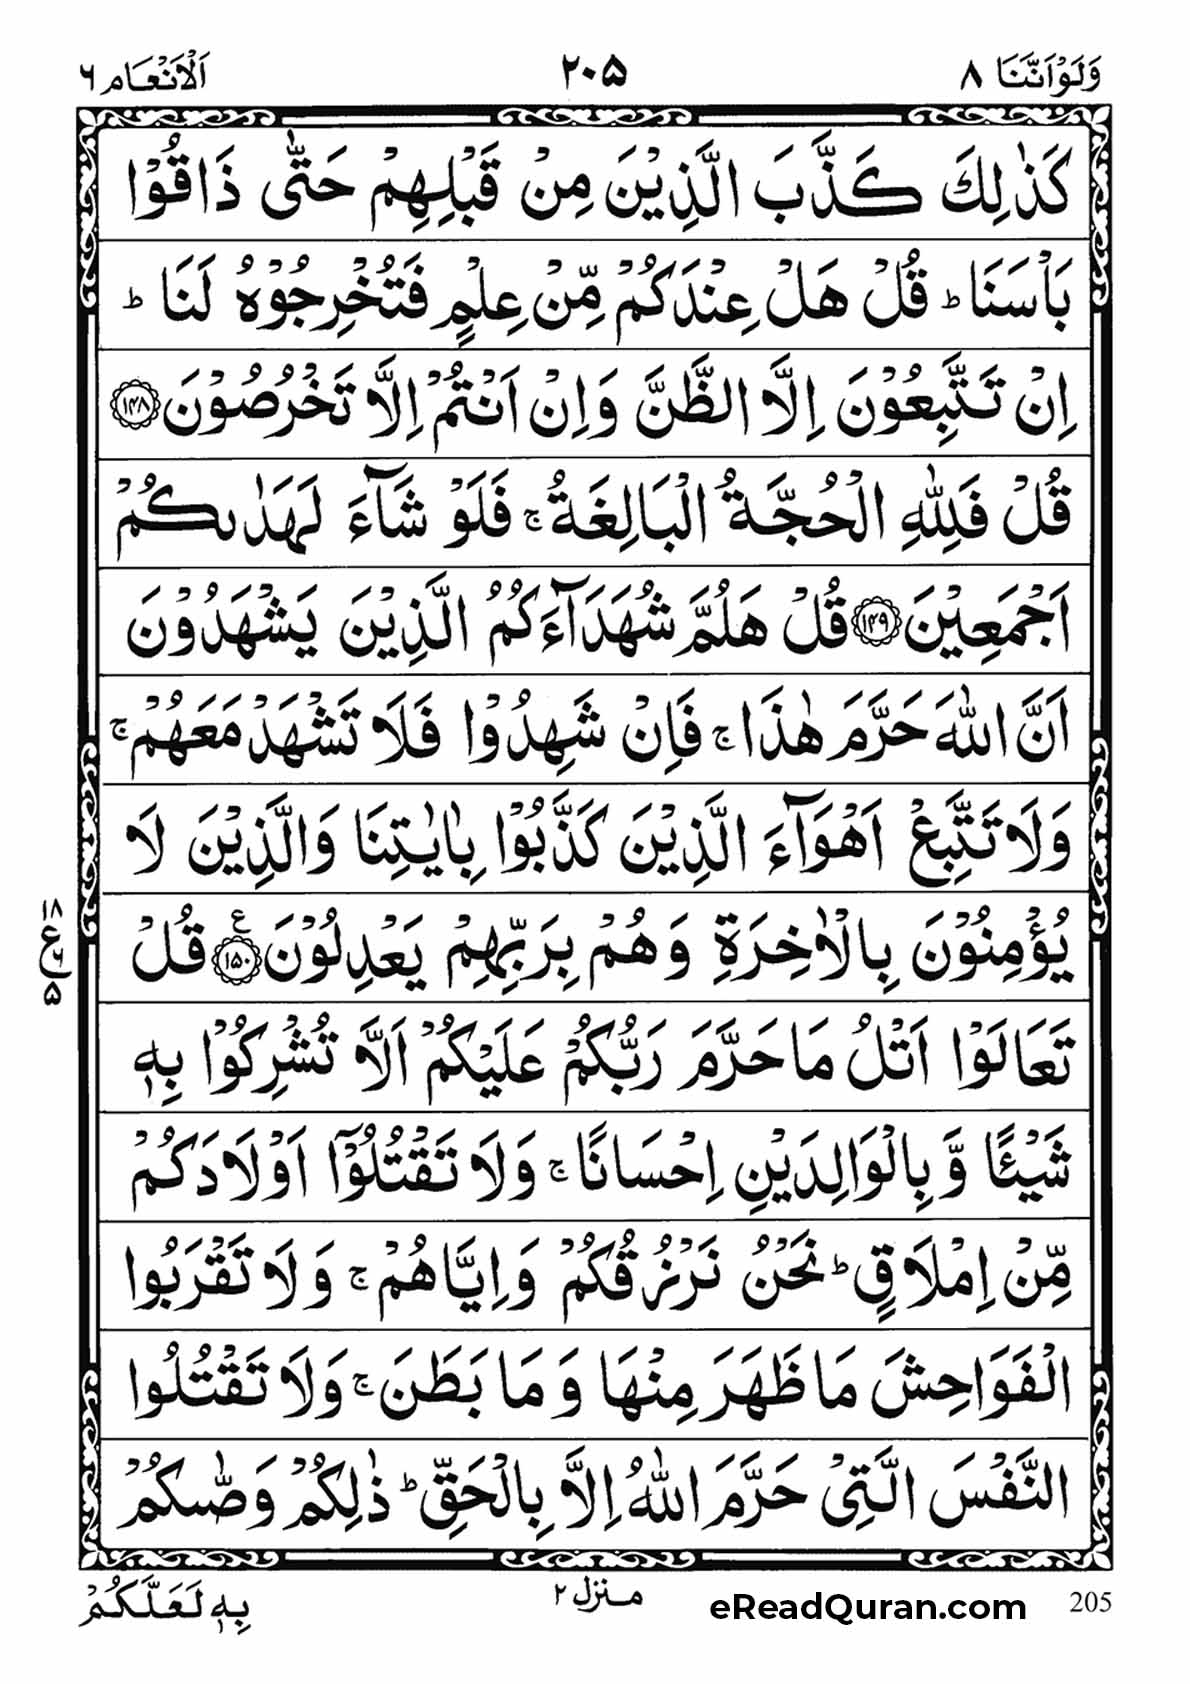 وَلَوْ اَنَّنَا ٨ ٢٠٥ اَلْاَنْعَام ٦
كَذٰلِكَ كَذَّبَ الَّذِيْنَ مِنْ قَبْلِهِمْ حَتّٰى ذَاقُوْا
بَاْسَنَا ؕ قُلْ هَلْ عِنْدَكُمْ مِّنْ عِلْمٍ فَتُخْرِجُوْهُ لَنَا ؕ
اِنْ تَتَّبِعُوْنَ اِلَّا الظَّنَّ وَاِنْ اَنْتُمْ اِلَّا تَخْرُصُوْنَ ﴿۱۴۸﴾
قُلْ فَلِلّٰهِ الْحُجَّةُ الْبَالِغَةُ ۚ فَلَوْ شَآءَ لَهَدٰىكُمْ
اَجْمَعِيْنَ ﴿۱۴۹﴾ قُلْ هَلُمَّ شُهَدَآءَكُمُ الَّذِيْنَ يَشْهَدُوْنَ
اَنَّ اللّٰهَ حَرَّمَ هٰذَا ۚ فَاِنْ شَهِدُوْا فَلَا تَشْهَدْ مَعَهُمْ ۚ
وَلَا تَتَّبِعْ اَهْوَآءَ الَّذِيْنَ كَذَّبُوْا بِاٰيٰتِنَا وَالَّذِيْنَ لَا
يُؤْمِنُوْنَ بِالْاٰخِرَةِ وَهُمْ بِرَبِّهِمْ يَعْدِلُوْنَ ﴿۱۵۰﴾ ع قُلْ
۱۸ ع ۶ ۵
تَعَالَوْا اَتْلُ مَا حَرَّمَ رَبُّكُمْ عَلَيْكُمْ اَلَّا تُشْرِكُوْا بِهٖ
شَيْئًا وَّ بِالْوَالِدَيْنِ اِحْسَانًا ۚ وَلَا تَقْتُلُوْۤا اَوْلَادَكُمْ
مِّنْ اِمْلَاقٍ ؕ نَحْنُ نَرْزُقُكُمْ وَاِيَّاهُمْ ۚ وَلَا تَقْرَبُوا
الْفَوَاحِشَ مَا ظَهَرَ مِنْهَا وَ مَا بَطَنَ ۚ وَلَا تَقْتُلُوا
النَّفْسَ الَّتِيْ حَرَّمَ اللّٰهُ اِلَّا بِالْحَقِّ ؕ ذٰلِكُمْ وَصّٰىكُمْ
بِهٖ لَعَلَّكُمْ منزل ٢ eReadQuran.com 205